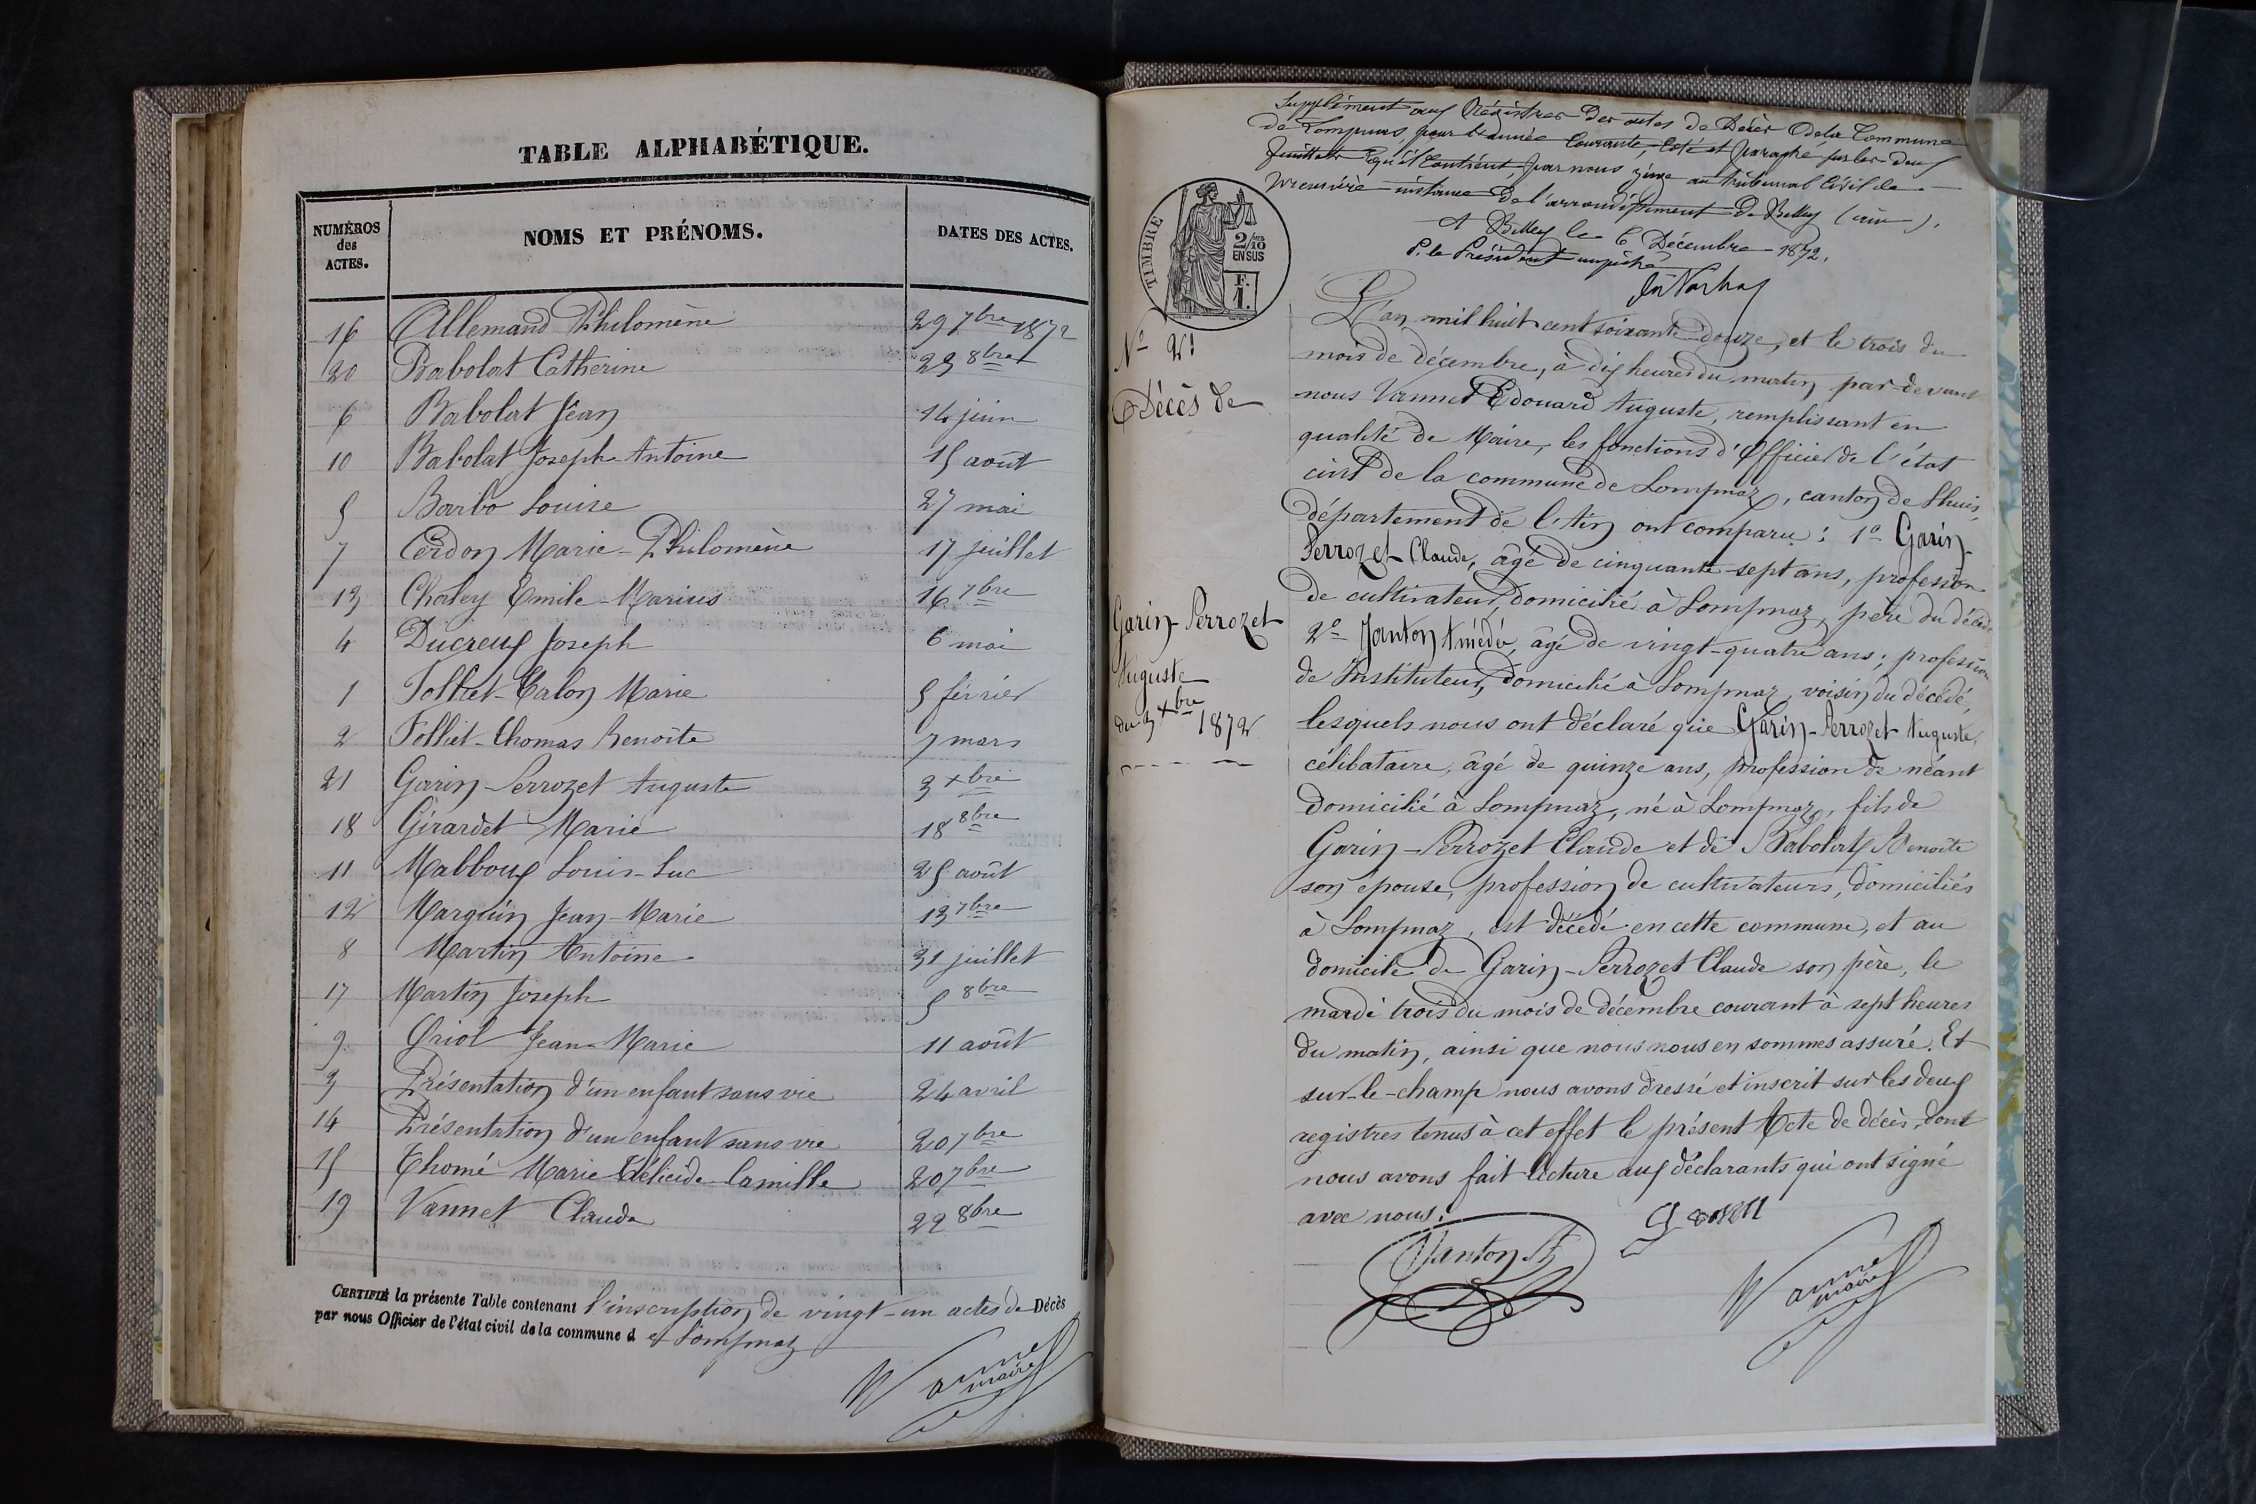 TABLE ALPHABÉTIQUE.
NUMÉROS
des
ACTES.
NOMS ET PRÉNOMS.
DATES DES ACTES.
16 Allemand Philomène 29 7bre 1872
20 Babolat Catherine 23 8bre
6 Babolat Jean 14 juin
10 Babolat Joseph-Antoine 15 août
5 Barbo Louise 27 mai
7 Cerdon Marie-Philomène 17 juillet
13 Chaley Emile-Marius 16 7bre
4 Ducreux Joseph 6 mai
1 Folliet-Calon Marie 5 février
2 Folliet-Thomas Benoîte 7 mars
21 Garin-Perrozet Auguste 3 xbre
18 Girardet Marie 18 8bre
11 Mabboux Louis-Luc 25 août
12 Marguin Jean-Marie 13 7bre
8 Martin Antoine 31 juillet
17 Martin Joseph 5 8bre
9 Oriol Jean-Marie 11 août
3 Présentation d'un enfant sans vie 24 avril
14 Présentation d'un enfant sans vie 20 7bre
15 Thomé Marie Camille 20 7bre
19 Vannet Claude 22 8bre
CERTIFIÉ la présente Table contenant l'inscription de vingt-un actes de Décès
par nous Officier de l'état civil de la commune d e Lompnaz
Vannet
maire
Supplément aux Régistres des actes de Décès de la Commune
de Lompnas pour l'année Courante, Coté et paraphé sur les deux
feuillets qu'il Contient, par nous juge au tribunal Civil de
première instance de l'arrondissement de Belley (ain).
A Belley le 6 Décembre 1872.
P. le Président empêché
TIMBRE
2/10
EN SUS
F.
1.
N° 21
Décès de
Garin-Perrozet
Auguste
du 3 xbre
1872
L'an mil huit cent soixante-douze, et le trois du
mois de décembre, à dix heures du matin, par devant
nous Vannet Edouard Auguste, remplissant en
qualité de Maire, les fonctions d'Officier de l'état
civil de la commune de Lompnaz, canton de Lhuis,
département de l'Ain ont comparu : 1° Garin-
Perrozet Claude, âgé de cinquante-sept ans, profession
de cultivateur, domicilié à Lompnaz, père du décédé
2° Janton Amédée, âgé de vingt-quatre ans, profession
de Instituteur, domicilié à Lompnaz, voisin du décédé,
lesquels nous ont déclaré que Garin-Perrozet Auguste,
célibataire, âgé de quinze ans, profession de néant
domicilié à Lompnaz, né à Lompnaz, fils de
Garin-Perrozet Claude et de Babolat Benoîte
son épouse, profession de cultivateurs, domiciliés
à Lompnaz, est décédé en cette commune, et au
domicile de Garin-Perrozet Claude son père, le
mardi trois du mois de décembre courant à sept heures
du matin, ainsi que nous nous en sommes assuré. Et
sur-le-champ nous avons dressé et inscrit sur les deux
registres tenus à cet effet le présent Acte de décès, dont
nous avons fait lecture aux déclarants qui ont signé
avec nous.
Garin
Janton A
Vannet
maire